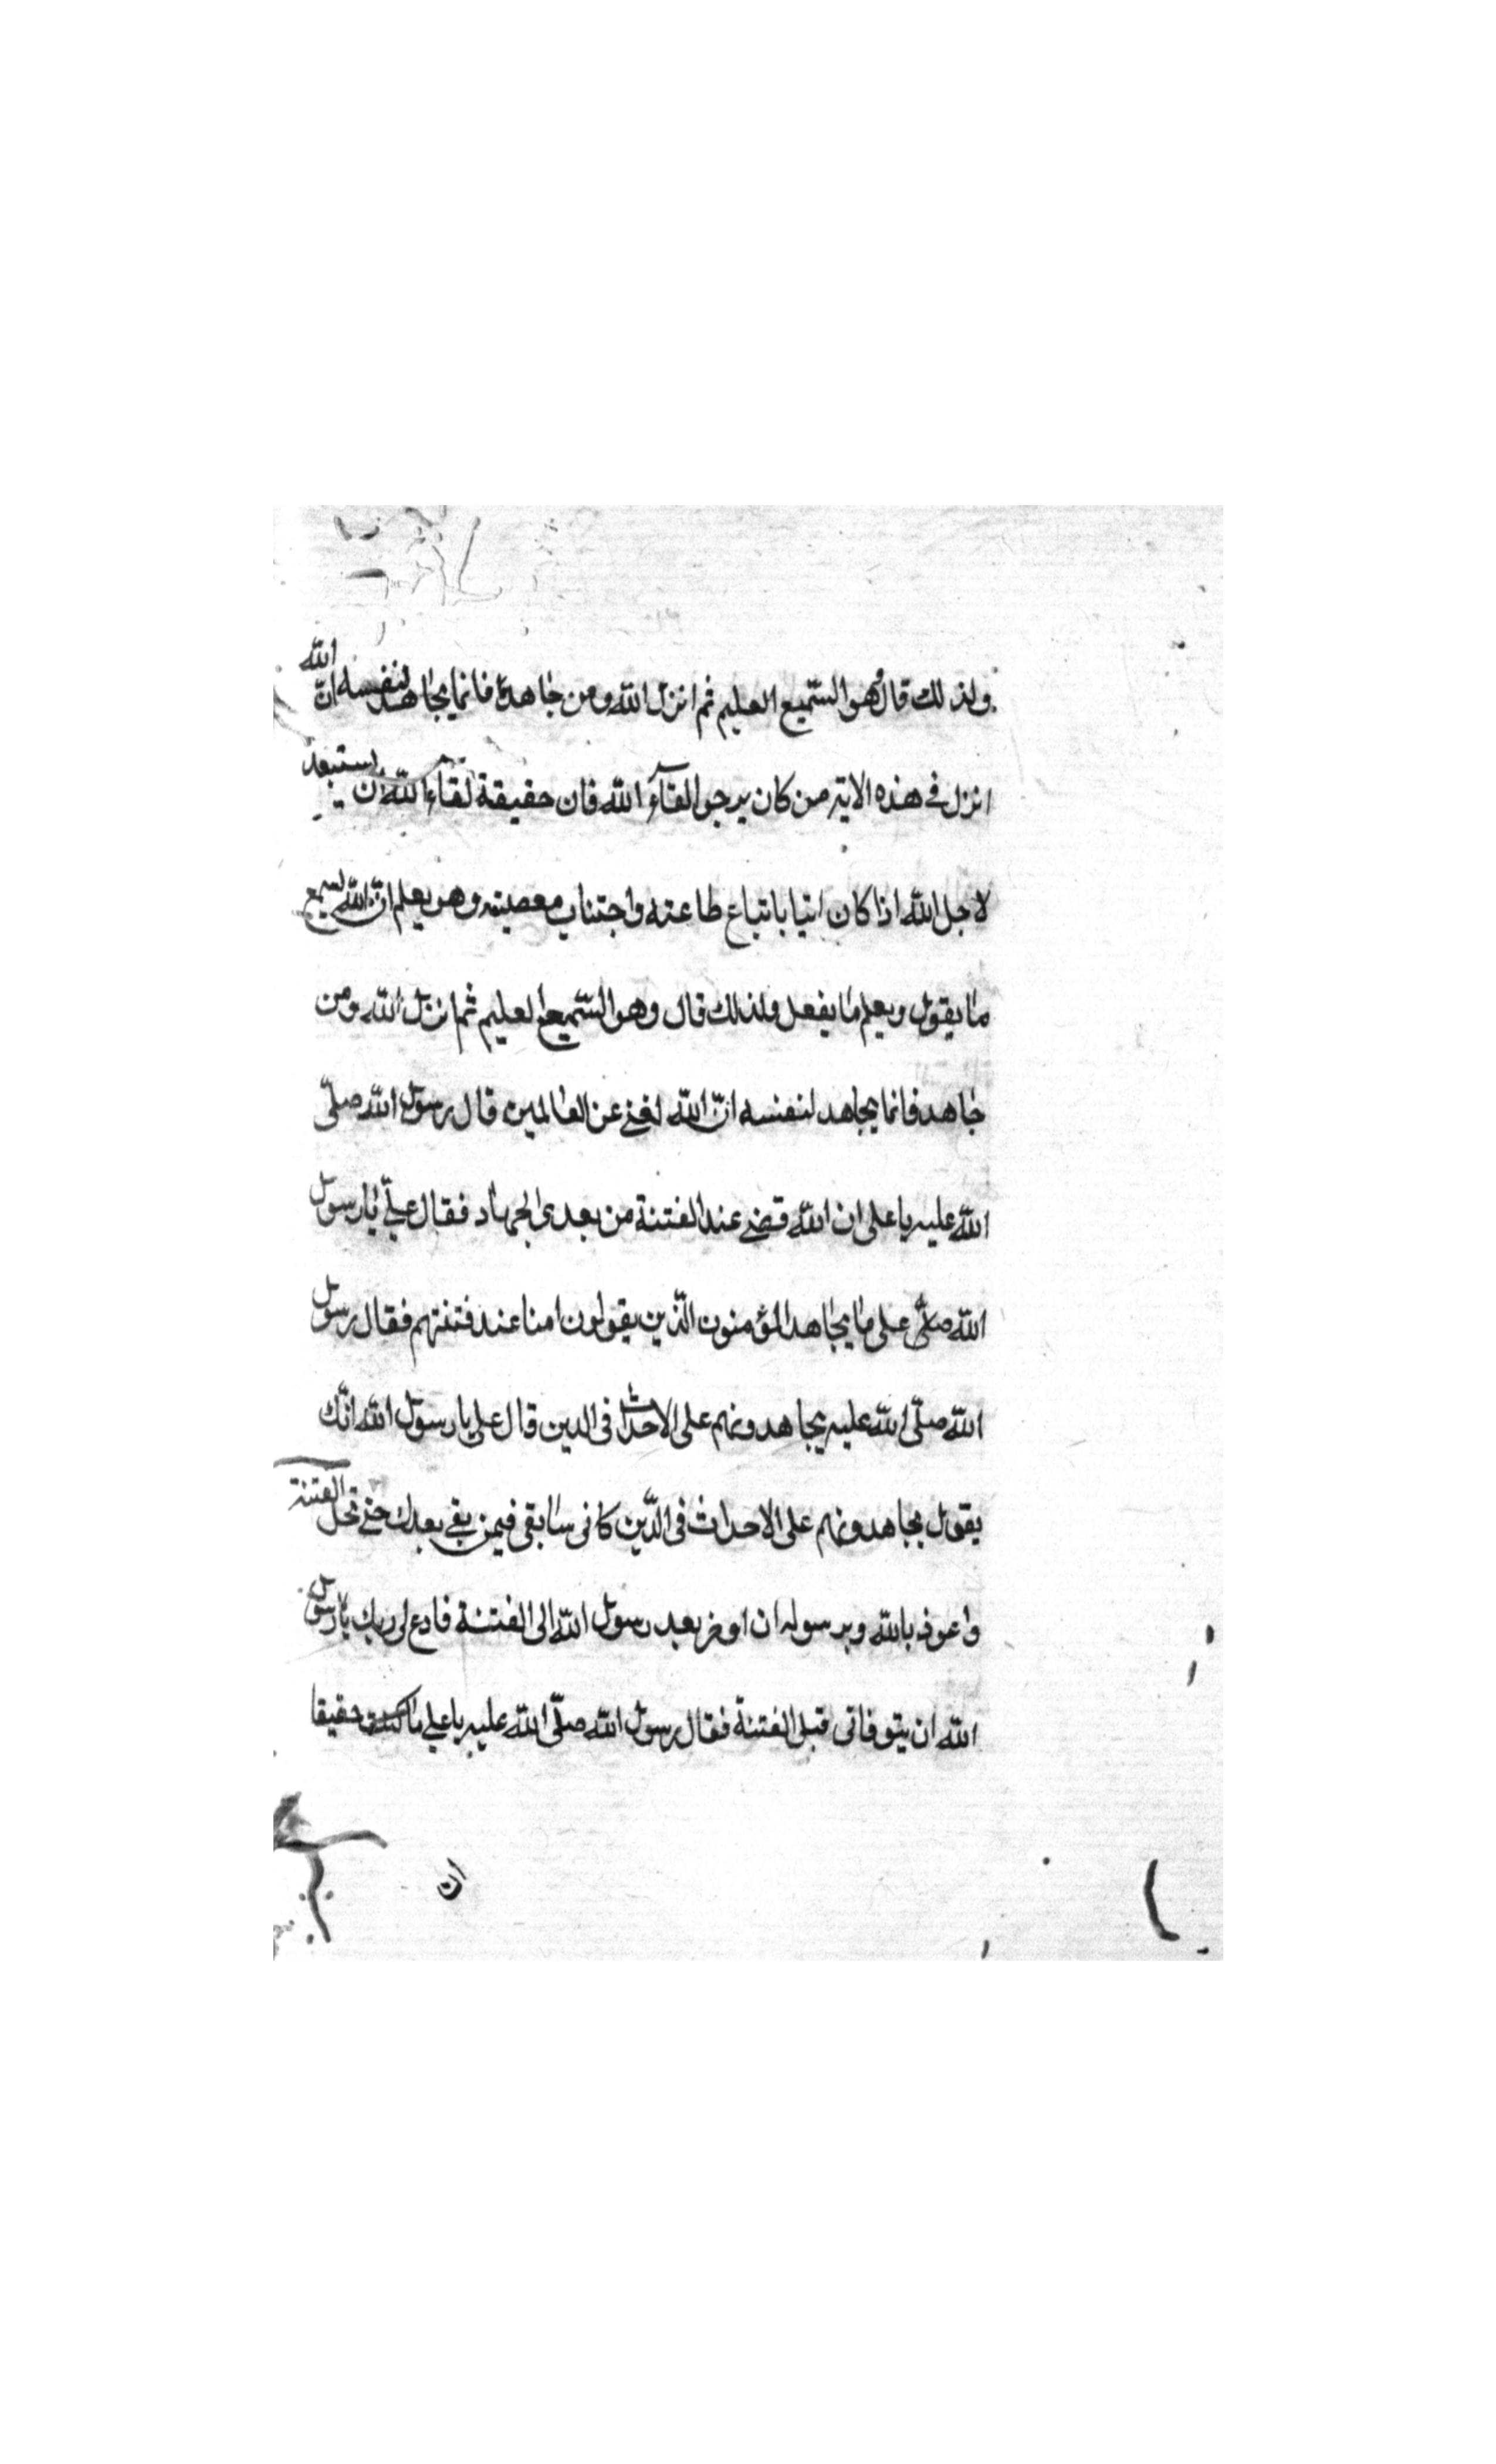 ولذلك قال وهو السّميع العليم ثم انزل الله ومن جاهد فانما يجاهد لنفسه انّ الله
انزل في هذه الاية من كان يرجوا لقآء الله فان حقيقة لقاء الله ان يستبعد
لاجل الله اذا كان اتيا باتباع طاعته واجتناب معصيته وهو يعلم انّ الله يسمع
ما يقول ويعلم ما يفعل ولذلك قال وهو السّميع العليم ثم انزل الله ومن
جاهد فانما يجاهد لنفسه انّ الله لغني عن العالمين قال رسول الله صلّى
الله عليه يا على ان الله قضى عند الفتنة من بعدى الجهاد فقال عليّ يا رسول
الله صلّى على ما يجاهد المؤمنون الّذين يقولون امنا عند فتنتهم فقال رسول
الله صلّى الله عليه يجاهدونهم على الاحداث فى الدين قال على يا رسول الله انّك
يقول يجاهدونهم على الاحداث فى الدّين كانى سابقى فيمن بقى بعدك حتى تحل الفتنة
واعوذ بالله وبرسوله ان اوخر بعد رسول الله الى الفتنة فادع لى ربك يا رسول
الله ان يتوفاتى قبل الفتنة فقال رسول الله صلّى الله عليه يا على ما كنت حقيقا
ان